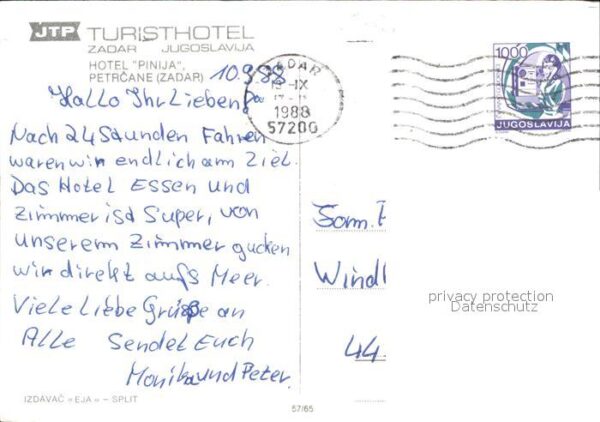 JTP TURISTHOTEL
ZADAR JUGOSLAVIJA
HOTEL "PINIJA",
PETRČANE (ZADAR)
10.9.88
Hallo Ihr Lieben
Nach 24 Stunden Fahren
waren wir endlich am Ziel.
Das Hotel Essen und
Zimmer ist Super, von
unserem Zimmer gucken
wir direkt aufs Meer.
Viele Liebe Grüße an
Alle Sendet Euch
Monika und Peter.
IZDAVAČ »EJA« – SPLIT
57/65
ZADAR
IX
1988
57200
1000
JUGOSLAVIJA
Fam.
Windl
44.
privacy protection
Datenschutz